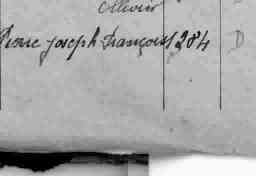 Ollivier
Pierre Joseph François 1284 D